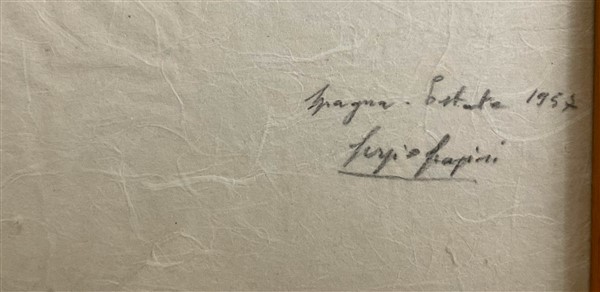 Spagna - Estate 1957
Sergio